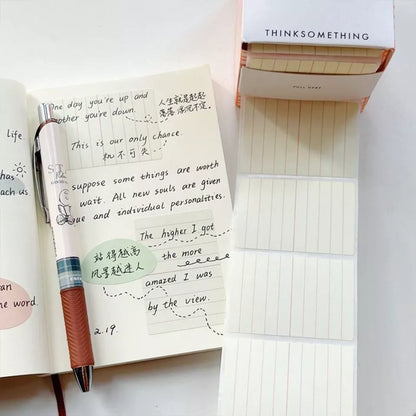 THINKSOMETHING
PULL HERE
One day you're up and
another you're down.
人生就是起起
落落 浮沉不定.
This is our only chance.
机不可失.
suppose some things are worth
wait. All new souls are given
and individual personalities.
The higher I got
the more
amazed I was
by the view.
站得越高
风景越迷人
2.19.
Life.
has
ach us
an
he word.